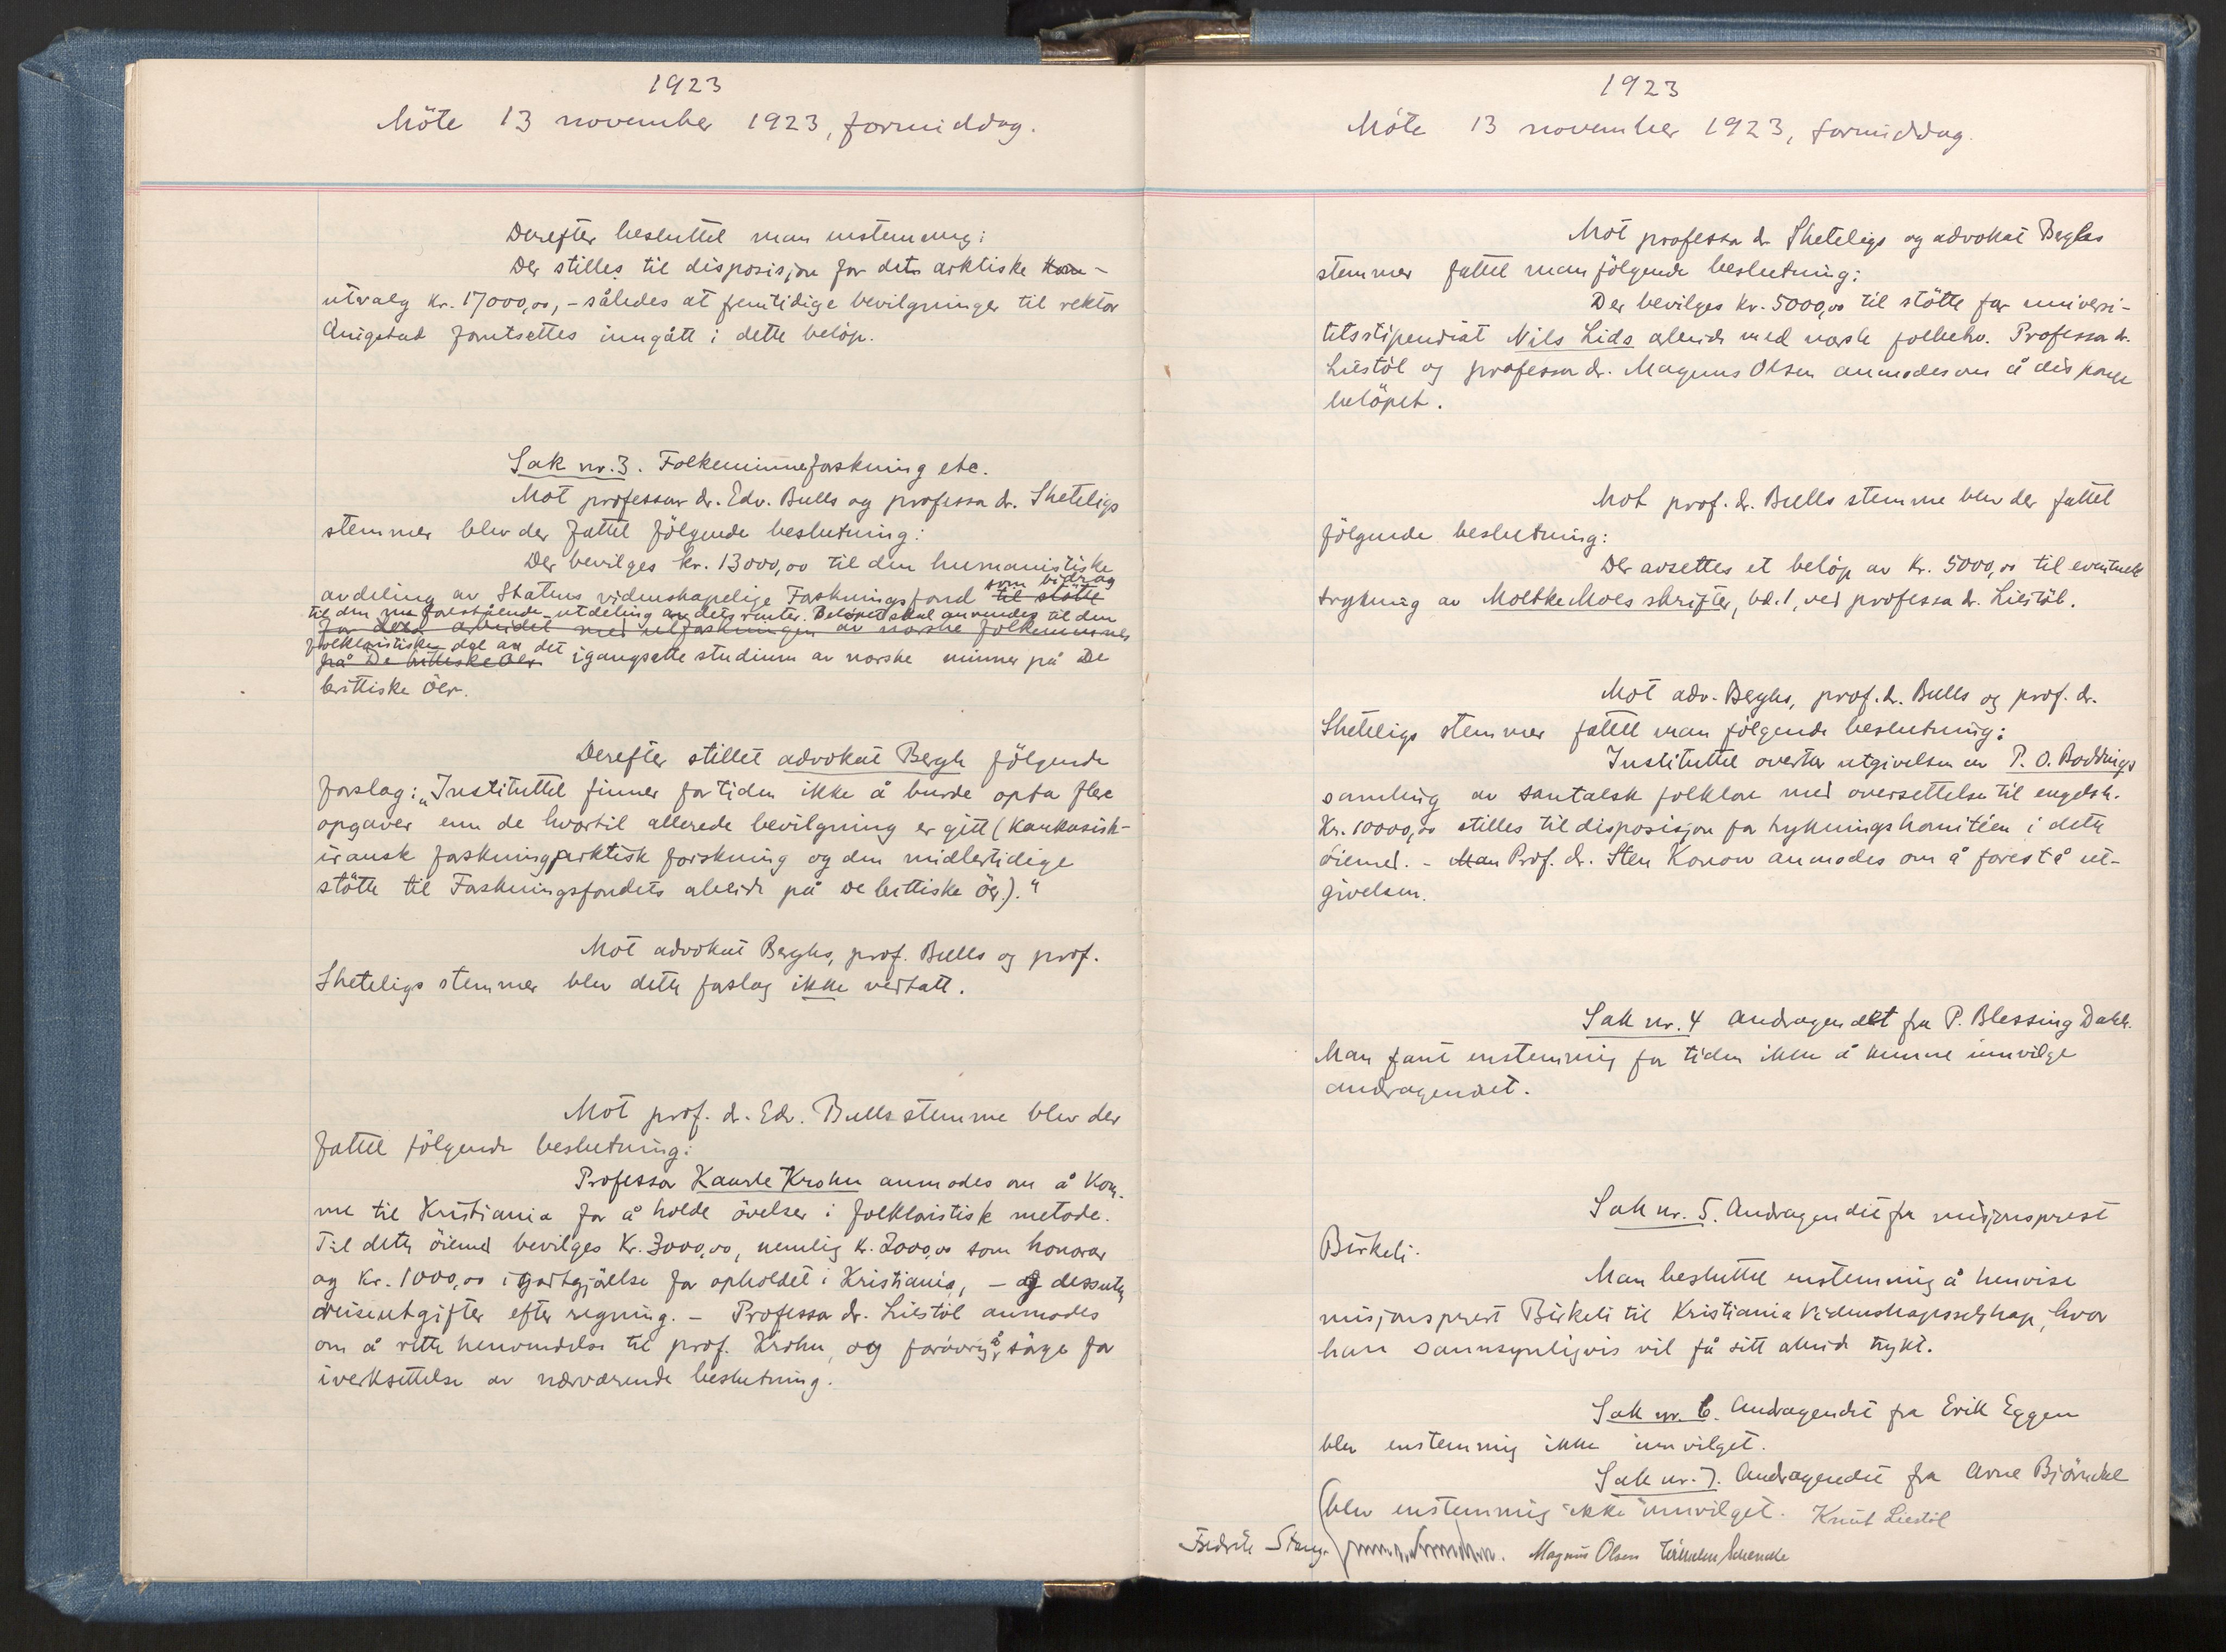 1923
Möte 13 november 1923, formiddag.
Derefter besluttet man enstemmig:
Der stilles til disposisjon for det arktiske
utvalg kr. 17000,00, – således at fremtidige bevilgninger til rektor
Qvigstad forutsettes inngått i dette beløp.
Sak nr. 3. Folkeminneforskning etc.
Mot professor dr. Edv. Bulls og professor dr. Sheteligs
stemmer blev der fattet følgende beslutning:
Der bevilges kr. 13000,00 til den humanistiske
som bidrag
avdeling av Statens videnskapelige Forskningsfond til støtte
til den nu forestående utdeling av dets renter. Beløpet skal anvendes til den
for dets arbeidet med utforskningen av norske folkeminner
folkloristiske del av det
på De brittiske Øer igangsatte studium av norske minner på De
brittiske Öer.
Derefter stillet advokat Bergh fölgende
forslag: „Instituttet finner for tiden ikke å burde opta flere
opgaver enn de hvortil allerede bevilgning er gitt (kaukasisk-
iransk forskning, arktisk forskning og den midlertidige
stötte til Forskningsfondets arbeide på de brittiske Öer)."
Mot advokat Berghs, prof. Bulls og prof.
Sheteligs stemmer blev dette forslag ikke vedtatt.
Mot prof. dr. Edv. Bulls stemme blev der
fattet fölgende beslutning:
Professor Kaarle Krohn anmodes om å kom-
me til Kristiania for å holde övelser i folkloristisk metode.
Til dette öiemed bevilges Kr. 3000,00, nemlig kr. 2000,00 som honorar
og Kr. 1000,00 i godtgjörelse for opholdet i Kristiania, – og dessuten
reiseutgifter efter regning. – Professor dr. Liestöl anmodes
om å rette henvendelse til prof. Krohn, og forövrig å sörge for
iverksettelse av nærværende beslutning.
1923
Möte 13 november 1923, formiddag.
Mot professor dr. Sheteligs og advokat Berghs
stemmer fattet man fölgende beslutning:
Der bevilges kr. 5000,00 til stötte for universi-
tetsstipendiat Nils Lids arbeide med norsk folketro. Professor dr.
Liestöl og professor dr. Magnus Olsen anmodes om å disponere
belöpet.
Mot prof. dr. Bulls stemme blev der fattet
fölgende beslutning:
Der avsettes et belöp av Kr. 5000,00 til eventuell
trykning av Moltke Moes skrifter, bd. 1, ved professor dr. Liestöl.
Mot adv. Berghs, prof. dr. Bulls og prof. dr.
Sheteligs stemmer fattet man fölgende beslutning:
Instituttet overtar utgivelsen av P. O. Boddings
samling av santalsk folklore med oversettelse til engelsk.
Kr. 10000,00 stilles til disposisjon for trykningskomitéen i dette
öiemed. – Man Prof. dr. Sten Konow anmodes om å forestå ut-
givelsen.
Sak nr. 4 Andragendet fra P. Blessing Dahl.
Man fant enstemmig for tiden ikke å kunne innvilge
andragendet.
Sak nr. 5. Andragendet fra misjonsprest
Birkeli.
Man besluttet enstemmig å henvise
misjonsprest Birkeli til Kristiania Videnskapsselskap, hvor
han sannsynligvis vil få sitt arbeide trykt.
Sak nr. 6. Andragendet fra Erik Eggen
blev enstemmig ikke innvilget.
Sak nr. 7. Andragendet fra Arne Björndal
blev enstemmig ikke innvilget. Knut Liestöl
Fredrik Stang. Magnus Olsen Wilhelm Schencke